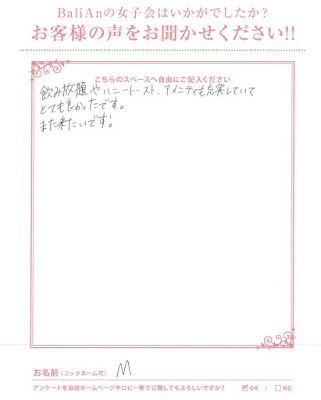 BaliAnの女子会はいかがでしたか?
お客様の声をお聞かせください!!
こちらのスペースへ自由にご記入ください
飲み放題やハニートースト、アメニティも充実していて
とても良かったです。
また来たいです!
お名前(ニックネーム可) M
アンケートを当店ホームページやロビー等で公開してもよろしいですか? ☑OK / □NG